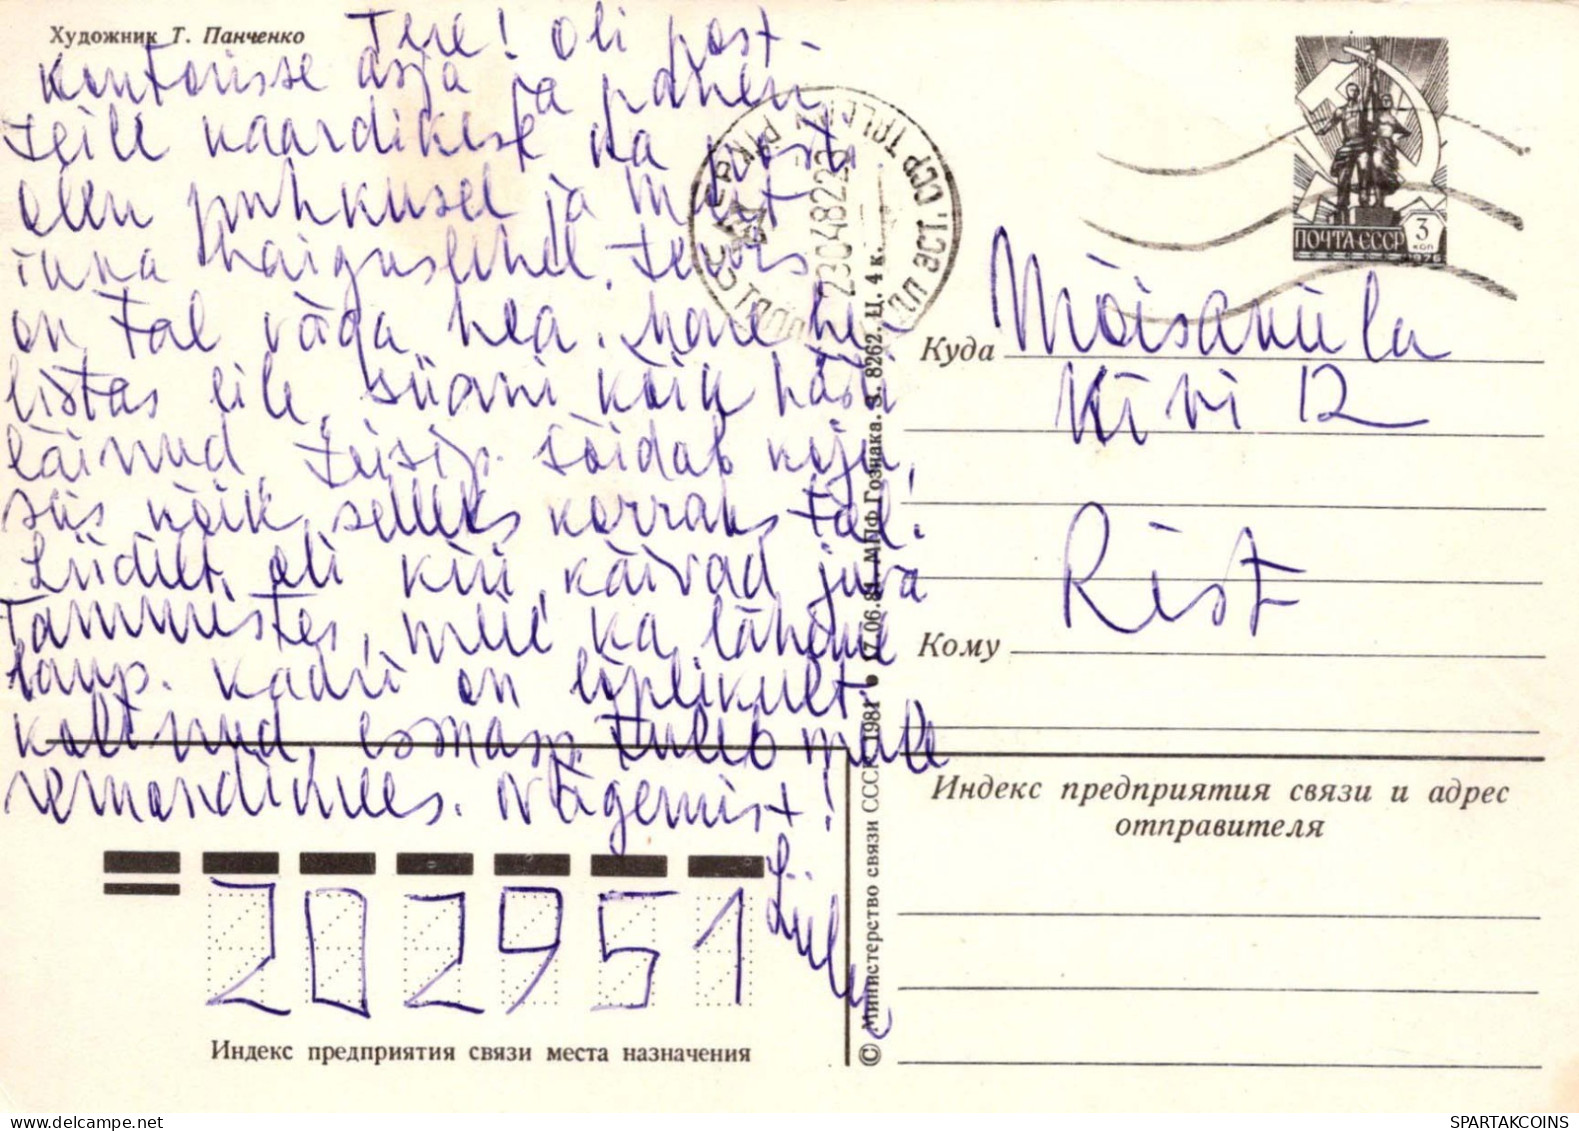 Художник Т. Панченко
Tere! Oli post-
kontorisse asja ja panen
teile kaardikese ka post
olen puhkusel ja Mart
ikka haiguslehel. tervis
on tal väga hea. Mare he-
listas eile, siiani kõik hästi
läinud teisip. sõidab koju,
siis kõik selleks korraks tal.
Liidilt oli kiri, käivad juba
Tammistes, meie ka lähme
laup. Kadri on lõplikult
kolinud, esmasp. tuleb meile
remondimees. Nägemist!
Lüüli
ПОЧТА СССР 3 коп 1976
23048222
Куда Mõisaküla
Kivi 12
Rist
Кому
Индекс предприятия связи и адрес
отправителя
202951
Индекс предприятия связи места назначения
© Министерство связи СССР. 1981 17.06.81. МПФ Гознака. З. 8262. Ц. 4 к.
SPARTAKCOINS